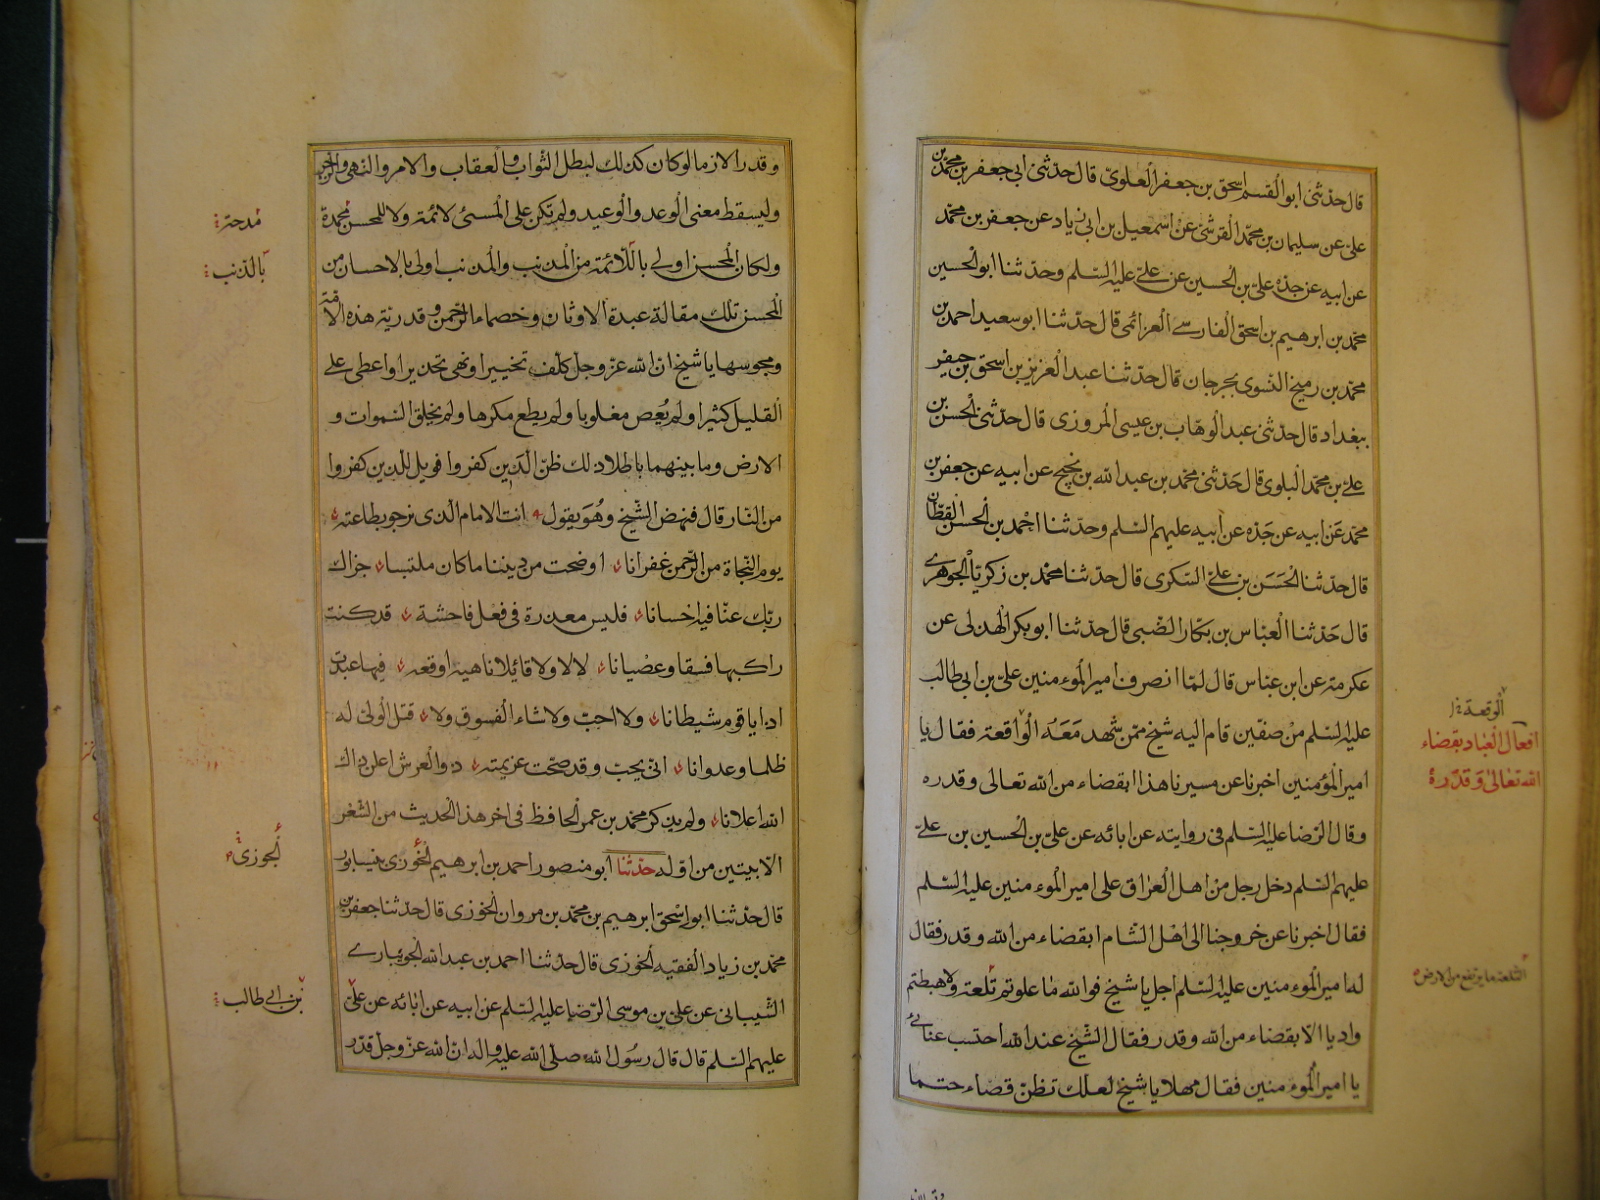 قال حدثنى ابو القسم اسحق بن جعفر العلوى قال حدثنى ابى جعفر بن محمد بن
على عن سليمان بن محمد القرشى عن اسمعيل بن ابى زياد عن جعفر بن محمد
عن ابيه عن جده على بن الحسين عن على عليه السلم وحدثنا ابو الحسين
محمد بن ابرهيم بن اسحق الفارسى العزائمى قال حدثنا ابو سعيد احمد بن
محمد بن رميح النسوى بجرجان قال حدثنا عبد العزيز بن اسحق بن جعفر
ببغداد قال حدثنى عبد الوهاب بن عيسى المروزى قال حدثنى الحسن بن
على بن محمد البلوى قال حدثنى محمد بن عبد الله بن نجيح عن ابيه عن جعفر بن
محمد عن ابيه عن جده عن ابيه عليهم السلم وحدثنا احمد بن الحسن القطان
قال حدثنا الحسن بن على السكرى قال حدثنا محمد بن زكريا الجوهرى
قال حدثنا العباس بن بكار الضبى قال حدثنا ابو بكر الهذلى عن
عكرمة عن ابن عباس قال لما انصرف امير المؤمنين على بن ابى طالب
عليه السلم من صفين قام اليه شيخ ممن شهد معه الواقعة فقال يا
امير المؤمنين اخبرنا عن مسيرنا هذا ابقضاء من الله تعالى وقدره
وقال الرضا عليه السلم فى روايته عن ابائه عن على بن الحسين بن على
عليهم السلم دخل رجل من اهل العراق على امير المؤمنين عليه السلم
فقال اخبرنا عن خروجنا الى اهل الشام ابقضاء من الله وقدر فقال
له امير المؤمنين عليه السلم اجل يا شيخ فوالله ما علوتم تلعة ولا هبطتم
واديا الا بقضاء من الله وقدر فقال الشيخ عند الله احتسب عنائى
يا امير المؤمنين فقال مهلا يا شيخ لعلك تظن قضاء حتما
الوقعة
افعال العباد بقضاء
الله تعالى وقدره
التلعة ما يرتفع من الارض
وقدرا لازما لو كان كذلك لبطل الثواب والعقاب والامر والنهى والزجر
وليسقط معنى الوعد والوعيد ولم تكن على المسئ لائمة ولا للمحسن محمدة
ولكان المحسن اولى باللائمة من المذنب والمذنب اولى بالاحسان من
المحسن تلك مقالة عبدة الاوثان وخصماء الرحمن وقدرية هذه الامة
ومجوسها يا شيخ ان الله عز وجل كلف تخييرا ونهى تحذيرا واعطى على
القليل كثيرا ولم يعص مغلوبا ولم يطع مكرها ولم يخلق السموات و
الارض وما بينهما باطلا ذلك ظن الذين كفروا فويل للذين كفروا
من النار قال فنهض الشيخ وهو يقول انت الامام الذى نرجو بطاعته
يوم النجاة من الرحمن غفرانا اوضحت من ديننا ما كان ملتبسا جزاك
ربك عنا فيه احسانا فليس معذرة فى فعل فاحشة قد كنت
راكبها فسقا وعصيانا لا لا ولا قائلا ناهيه اوقعه فيها عبدت
اذا يا قوم شيطانا ولا احب ولا شاء الفسوق ولا قتل الولى له
ظلما وعدوانا انى يحب وقد صحت عزيمته ذو العرش اعلن ذاك
الله اعلانا ولم يذكر محمد بن عمر الحافظ فى اخر هذا الحديث من الشعر
الا بيتين من اوله حدثنا ابو منصور احمد بن ابرهيم الخوزى بنيسابور
قال حدثنا ابو اسحق ابرهيم بن محمد بن مروان الخوزى قال حدثنا جعفر بن
محمد بن زياد الفقيه الخوزى قال حدثنا احمد بن عبد الله الجويبارى
الشيبانى عن على بن موسى الرضا عليه السلم عن ابيه عن ابائه عن على
عليهم السلم قال قال رسول الله صلى الله عليه واله ان الله عز وجل قدر
مدحة
بالذنب
الجوزى
بن ابى طالب